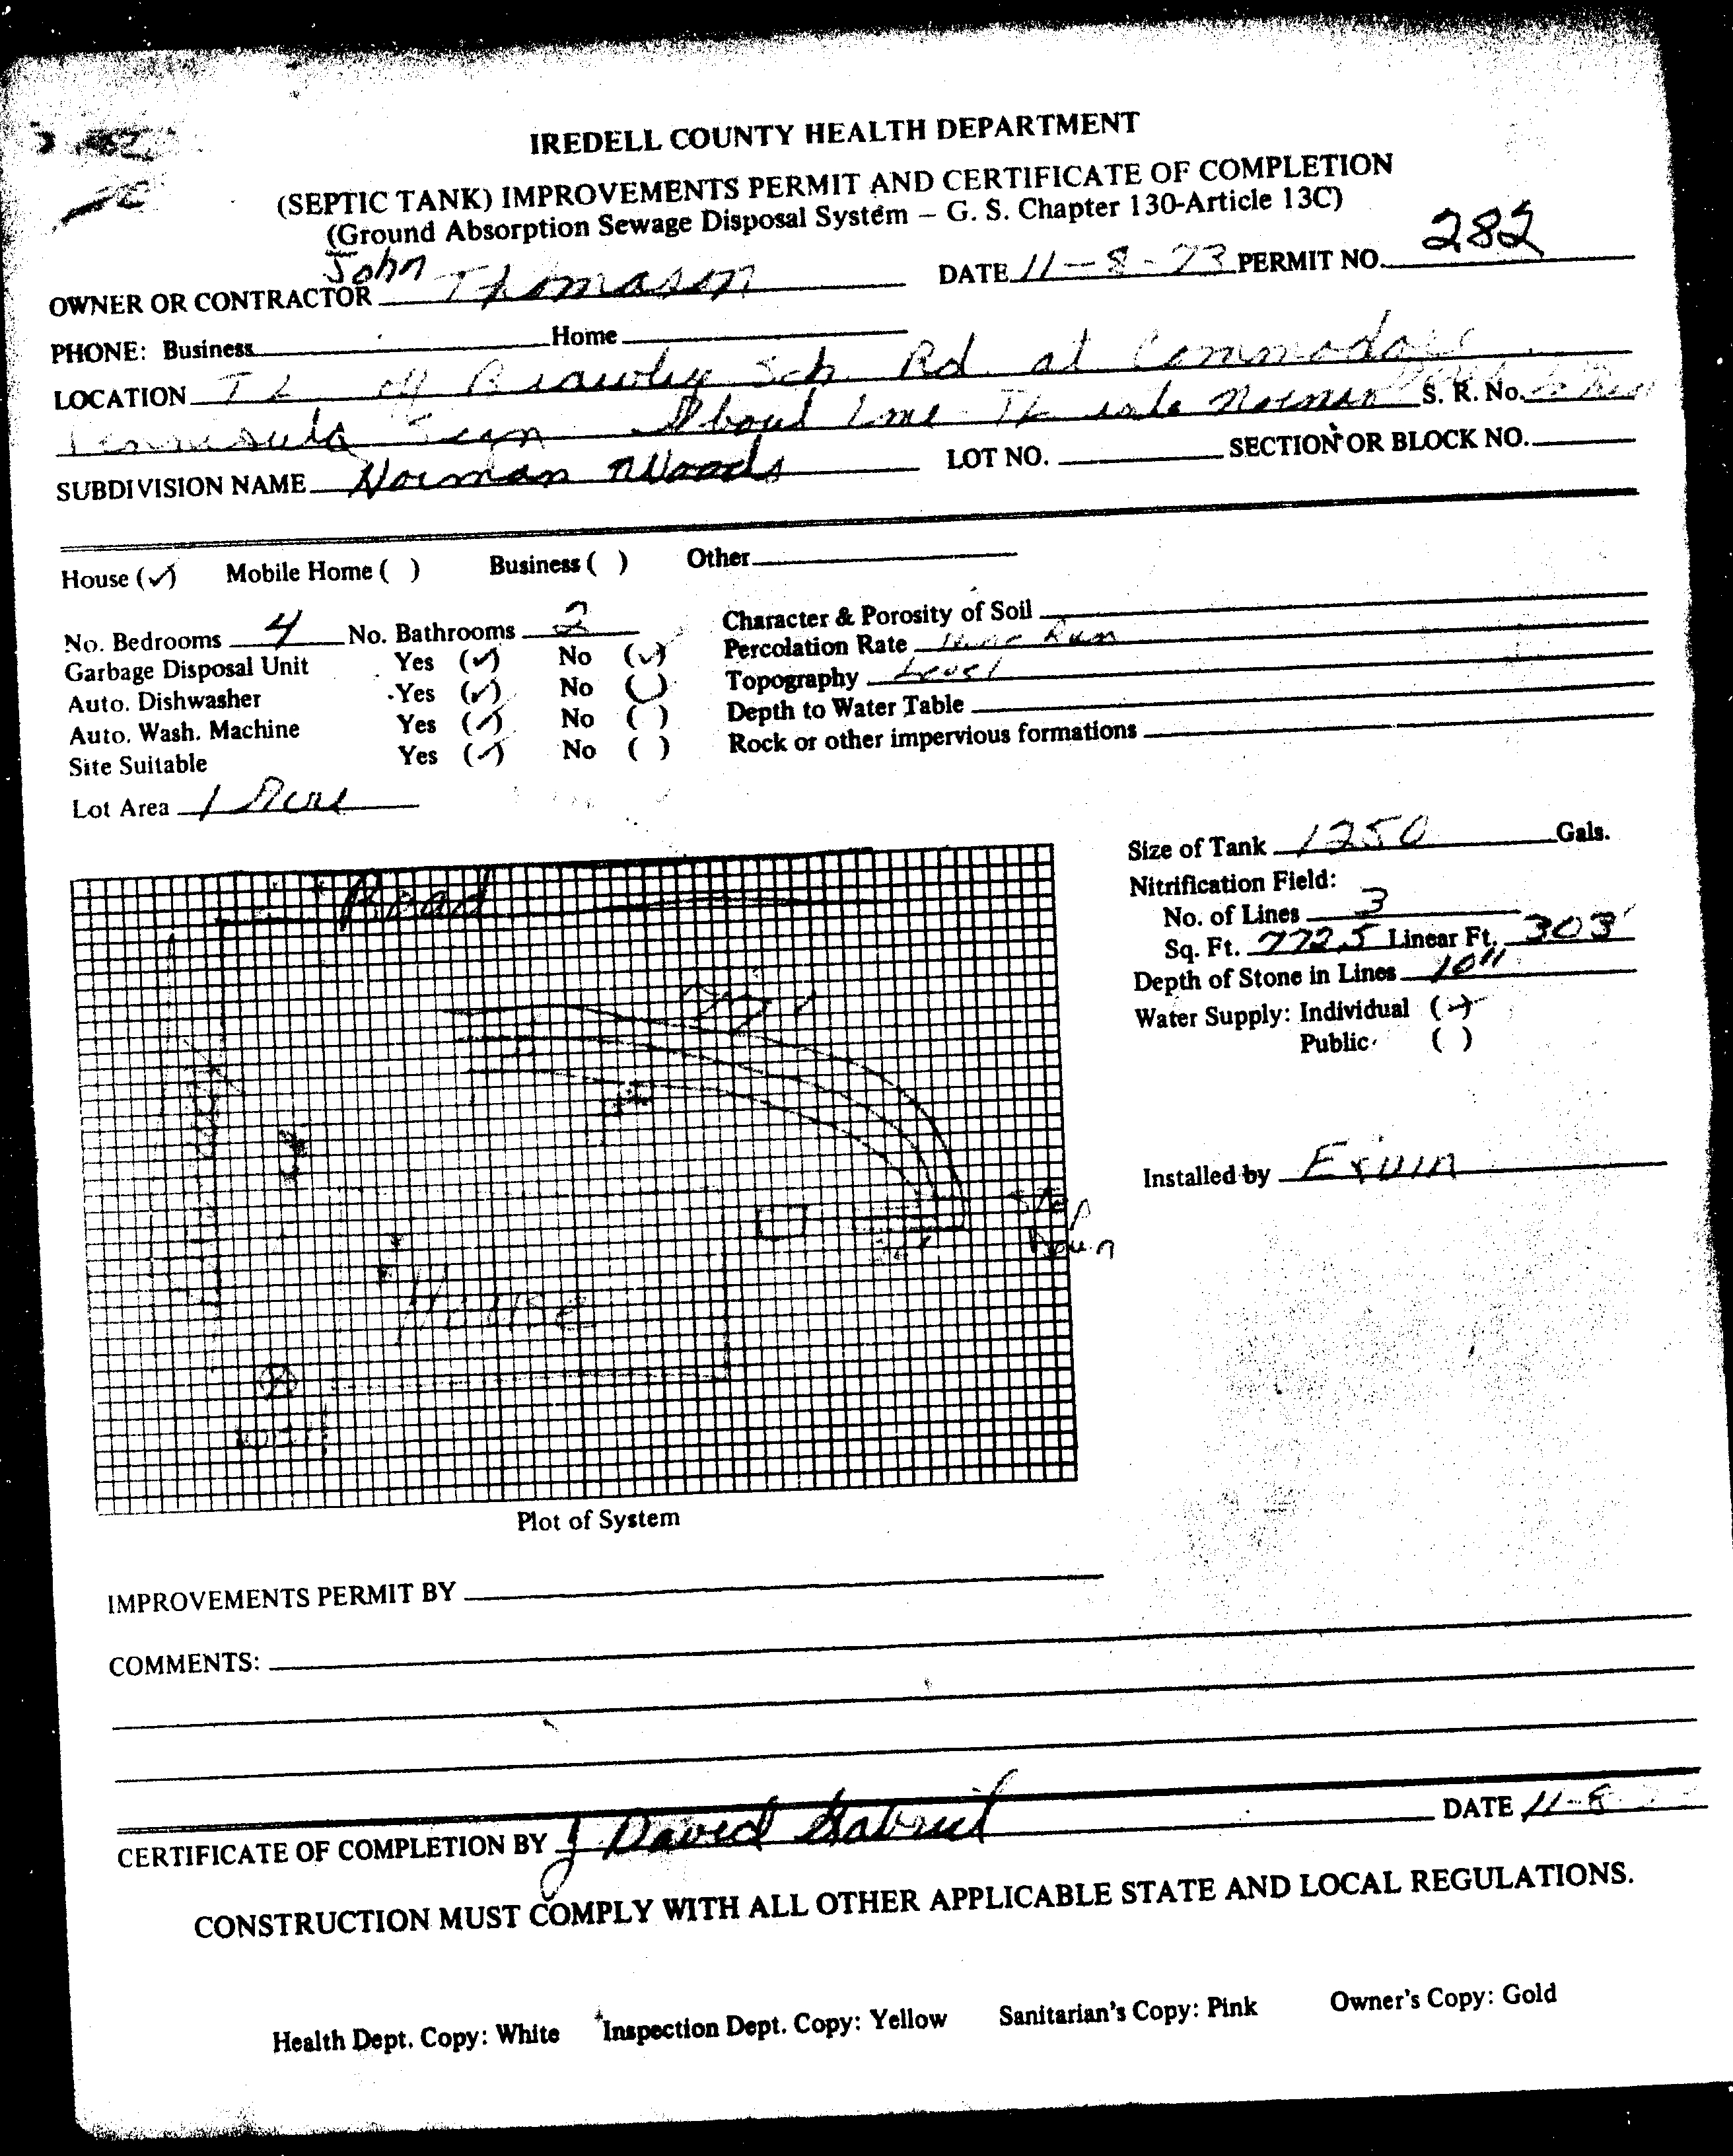 IREDELL COUNTY HEALTH DEPARTMENT
(SEPTIC TANK) IMPROVEMENTS PERMIT AND CERTIFICATE OF COMPLETION
(Ground Absorption Sewage Disposal System – G. S. Chapter 130-Article 13C)
OWNER OR CONTRACTOR John Thomason DATE 11-8-73 PERMIT NO. 282
PHONE: Business Home
LOCATION TL off Brawley Sch. Rd at Commodore
Pennisula Sign About 1 mi TL into Norman S. R. No.
SUBDIVISION NAME Norman Woods LOT NO. SECTION OR BLOCK NO.
House (✓) Mobile Home ( ) Business ( ) Other
No. Bedrooms 4 No. Bathrooms 2 Character & Porosity of Soil
Garbage Disposal Unit Yes (✓) No (✓) Percolation Rate Run
Auto. Dishwasher Yes (✓) No ( ) Topography Level
Auto. Wash. Machine Yes (✓) No ( ) Depth to Water Table
Site Suitable Yes (✓) No ( ) Rock or other impervious formations
Lot Area 1 Acre
Size of Tank 1250 Gals.
Nitrification Field:
No. of Lines 3
Sq. Ft. 772.5 Linear Ft. 303'
Depth of Stone in Lines 10"
Water Supply: Individual (✓)
Public ( )
Installed by Ervin
Road
Step
Down
House
Well
Plot of System
IMPROVEMENTS PERMIT BY
COMMENTS:
CERTIFICATE OF COMPLETION BY J David Gabriel DATE 11-8
CONSTRUCTION MUST COMPLY WITH ALL OTHER APPLICABLE STATE AND LOCAL REGULATIONS.
Health Dept. Copy: White Inspection Dept. Copy: Yellow Sanitarian's Copy: Pink Owner's Copy: Gold